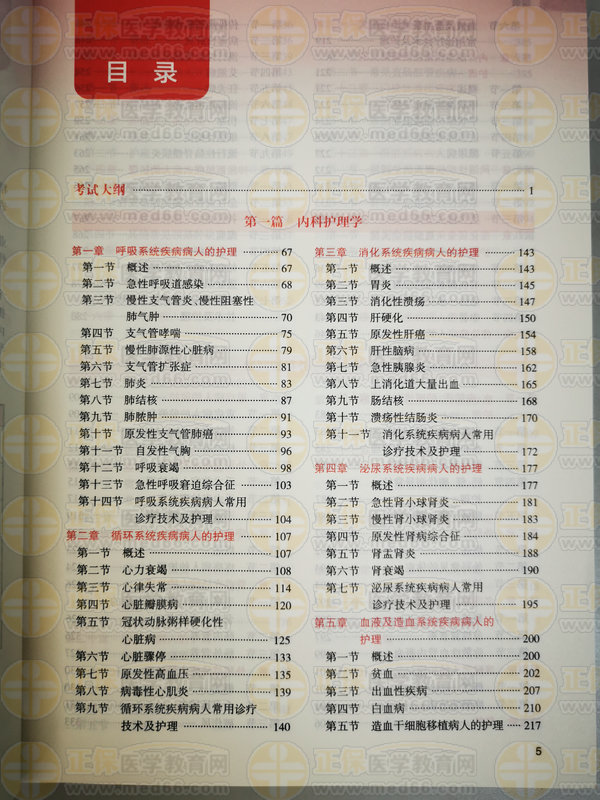 目 录
考试大纲 1
第一篇 内科护理学
第一章 呼吸系统疾病病人的护理 67
第一节 概述 67
第二节 急性呼吸道感染 68
第三节 慢性支气管炎、慢性阻塞性
肺气肿 70
第四节 支气管哮喘 75
第五节 慢性肺源性心脏病 79
第六节 支气管扩张症 81
第七节 肺炎 83
第八节 肺结核 87
第九节 肺脓肿 91
第十节 原发性支气管肺癌 93
第十一节 自发性气胸 96
第十二节 呼吸衰竭 98
第十三节 急性呼吸窘迫综合征 103
第十四节 呼吸系统疾病病人常用
诊疗技术及护理 104
第二章 循环系统疾病病人的护理 107
第一节 概述 107
第二节 心力衰竭 108
第三节 心律失常 114
第四节 心脏瓣膜病 120
第五节 冠状动脉粥样硬化性
心脏病 125
第六节 心脏骤停 133
第七节 原发性高血压 135
第八节 病毒性心肌炎 139
第九节 循环系统疾病病人常用诊疗
技术及护理 140
第三章 消化系统疾病病人的护理 143
第一节 概述 143
第二节 胃炎 145
第三节 消化性溃疡 147
第四节 肝硬化 150
第五节 原发性肝癌 154
第六节 肝性脑病 158
第七节 急性胰腺炎 162
第八节 上消化道大量出血 165
第九节 肠结核 168
第十节 溃疡性结肠炎 170
第十一节 消化系统疾病病人常用
诊疗技术及护理 172
第四章 泌尿系统疾病病人的护理 177
第一节 概述 177
第二节 急性肾小球肾炎 181
第三节 慢性肾小球肾炎 183
第四节 原发性肾病综合征 184
第五节 肾盂肾炎 188
第六节 肾衰竭 190
第七节 泌尿系统疾病病人常用
诊疗技术及护理 195
第五章 血液及造血系统疾病病人的
护理 200
第一节 概述 200
第二节 贫血 202
第三节 出血性疾病 207
第四节 白血病 210
第五节 造血干细胞移植病人的护理 217
5
正保医学教育网
www.med66.com